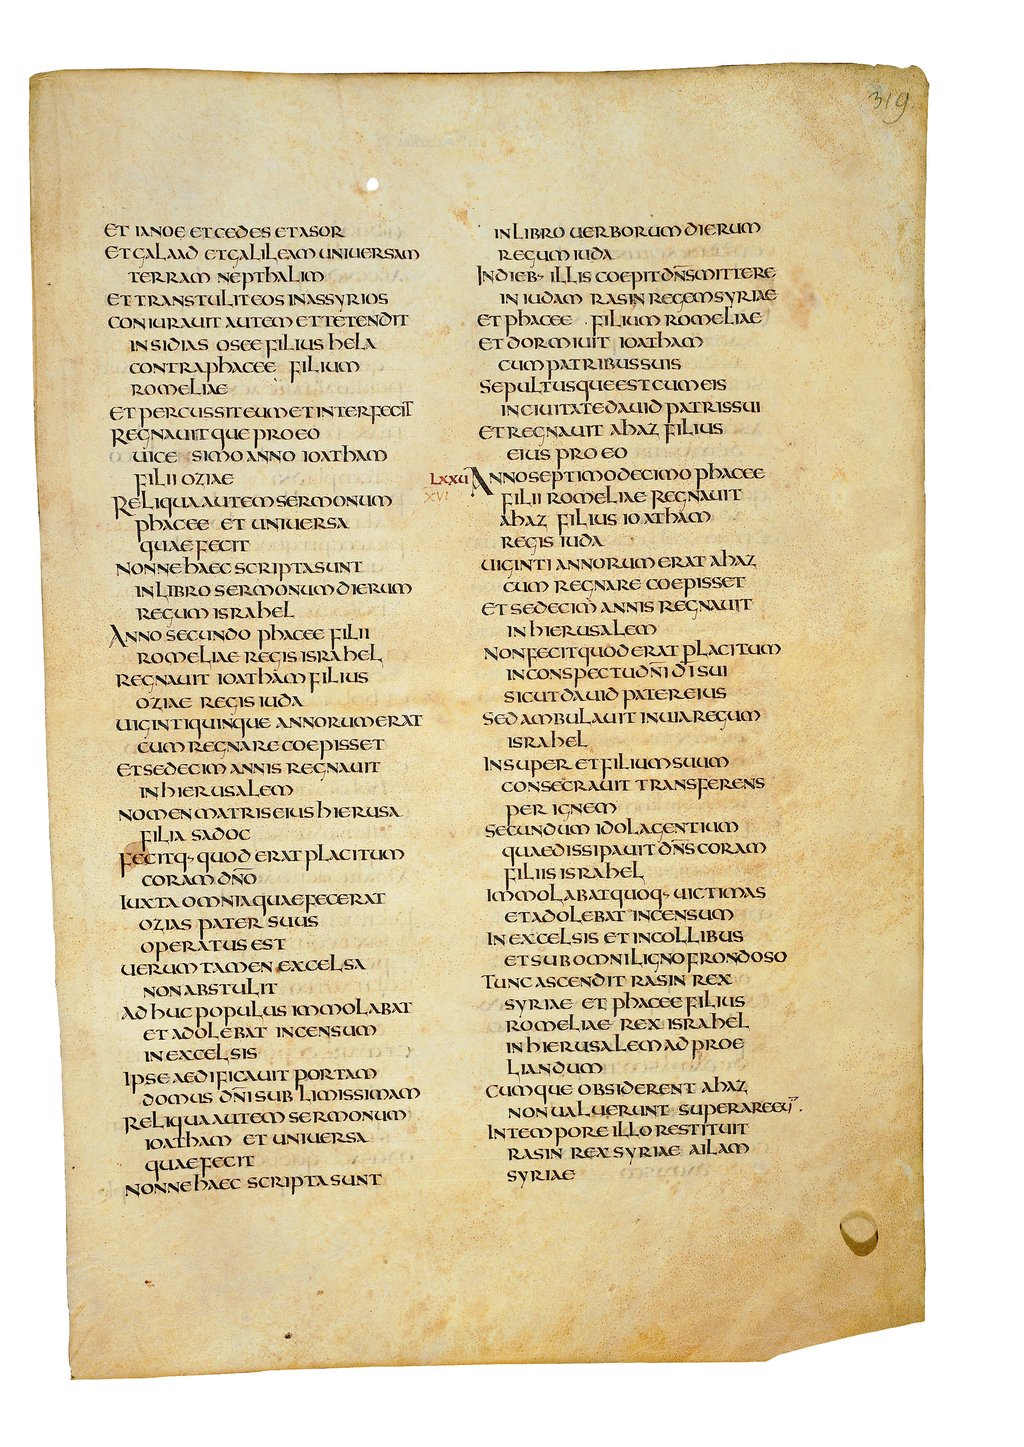 319
ET IANOE ET CEDES ET ASOR
ET GALAAD ET GALILEAM UNIUERSAM
TERRAM NEPTHALIM
ET TRANSTULIT EOS IN ASSYRIOS
CONIURAUIT AUTEM ET TETENDIT
INSIDIAS OSEE FILIUS HELA
CONTRA PHACEE FILIUM
ROMELIAE
ET PERCUSSIT EUM ET INTERFECIT
REGNAUITQUE PRO EO
UICESIMO ANNO IOATHAM
FILII OZIAE
RELIQUA AUTEM SERMONUM
PHACEE ET UNIUERSA
QUAE FECIT
NONNE HAEC SCRIPTA SUNT
IN LIBRO SERMONUM DIERUM
REGUM ISRAHEL
ANNO SECUNDO PHACEE FILII
ROMELIAE REGIS ISRAHEL
REGNAUIT IOATHAM FILIUS
OZIAE REGIS IUDA
UIGINTI QUINQUE ANNORUM ERAT
CUM REGNARE COEPISSET
ET SEDECIM ANNIS REGNAUIT
IN HIERUSALEM
NOMEN MATRIS EIUS HIERUSA
FILIA SADOC
FECITQ· QUOD ERAT PLACITUM
CORAM DN̄O
IUXTA OMNIA QUAE FECERAT
OZIAS PATER SUUS
OPERATUS EST
UERUMTAMEN EXCELSA
NON ABSTULIT
ADHUC POPULUS IMMOLABAT
ET ADOLEBAT INCENSUM
IN EXCELSIS
IPSE AEDIFICAUIT PORTAM
DOMUS DN̄I SUBLIMISSIMAM
RELIQUA AUTEM SERMONUM
IOATHAM ET UNIUERSA
QUAE FECIT
NONNE HAEC SCRIPTA SUNT
IN LIBRO UERBORUM DIERUM
REGUM IUDA
IN DIEB· ILLIS COEPIT DN̄S MITTERE
IN IUDAM RASIN REGEM SYRIAE
ET PHACEE FILIUM ROMELIAE
ET DORMIUIT IOATHAM
CUM PATRIBUS SUIS
SEPULTUSQUE EST CUM EIS
IN CIUITATE DAUID PATRIS SUI
ET REGNAUIT AHAZ FILIUS
EIUS PRO EO
LXXU ANNO SEPTIMO DECIMO PHACEE
XVI FILII ROMELIAE REGNAUIT
AHAZ FILIUS IOATHAM
REGIS IUDA
UIGINTI ANNORUM ERAT AHAZ
CUM REGNARE COEPISSET
ET SEDECIM ANNIS REGNAUIT
IN HIERUSALEM
NON FECIT QUOD ERAT PLACITUM
IN CONSPECTU DN̄I DĪ SUI
SICUT DAUID PATER EIUS
SED AMBULAUIT IN UIA REGUM
ISRAHEL
INSUPER ET FILIUM SUUM
CONSECRAUIT TRANSFERENS
PER IGNEM
SECUNDUM IDOLA GENTIUM
QUAE DISSIPAUIT DN̄S CORAM
FILIIS ISRAHEL
IMMOLABAT QUOQ· UICTIMAS
ET ADOLEBAT INCENSUM
IN EXCELSIS ET IN COLLIBUS
ET SUB OMNI LIGNO FRONDOSO
TUNC ASCENDIT RASIN REX
SYRIAE ET PHACEE FILIUS
ROMELIAE REX ISRAHEL
IN HIERUSALEM AD PROE
LIANDUM
CUMQUE OBSIDERENT AHAZ
NON UALUERUNT SUPERARE EŪ.
IN TEMPORE ILLO RESTITUIT
RASIN REX SYRIAE AILAM
SYRIAE